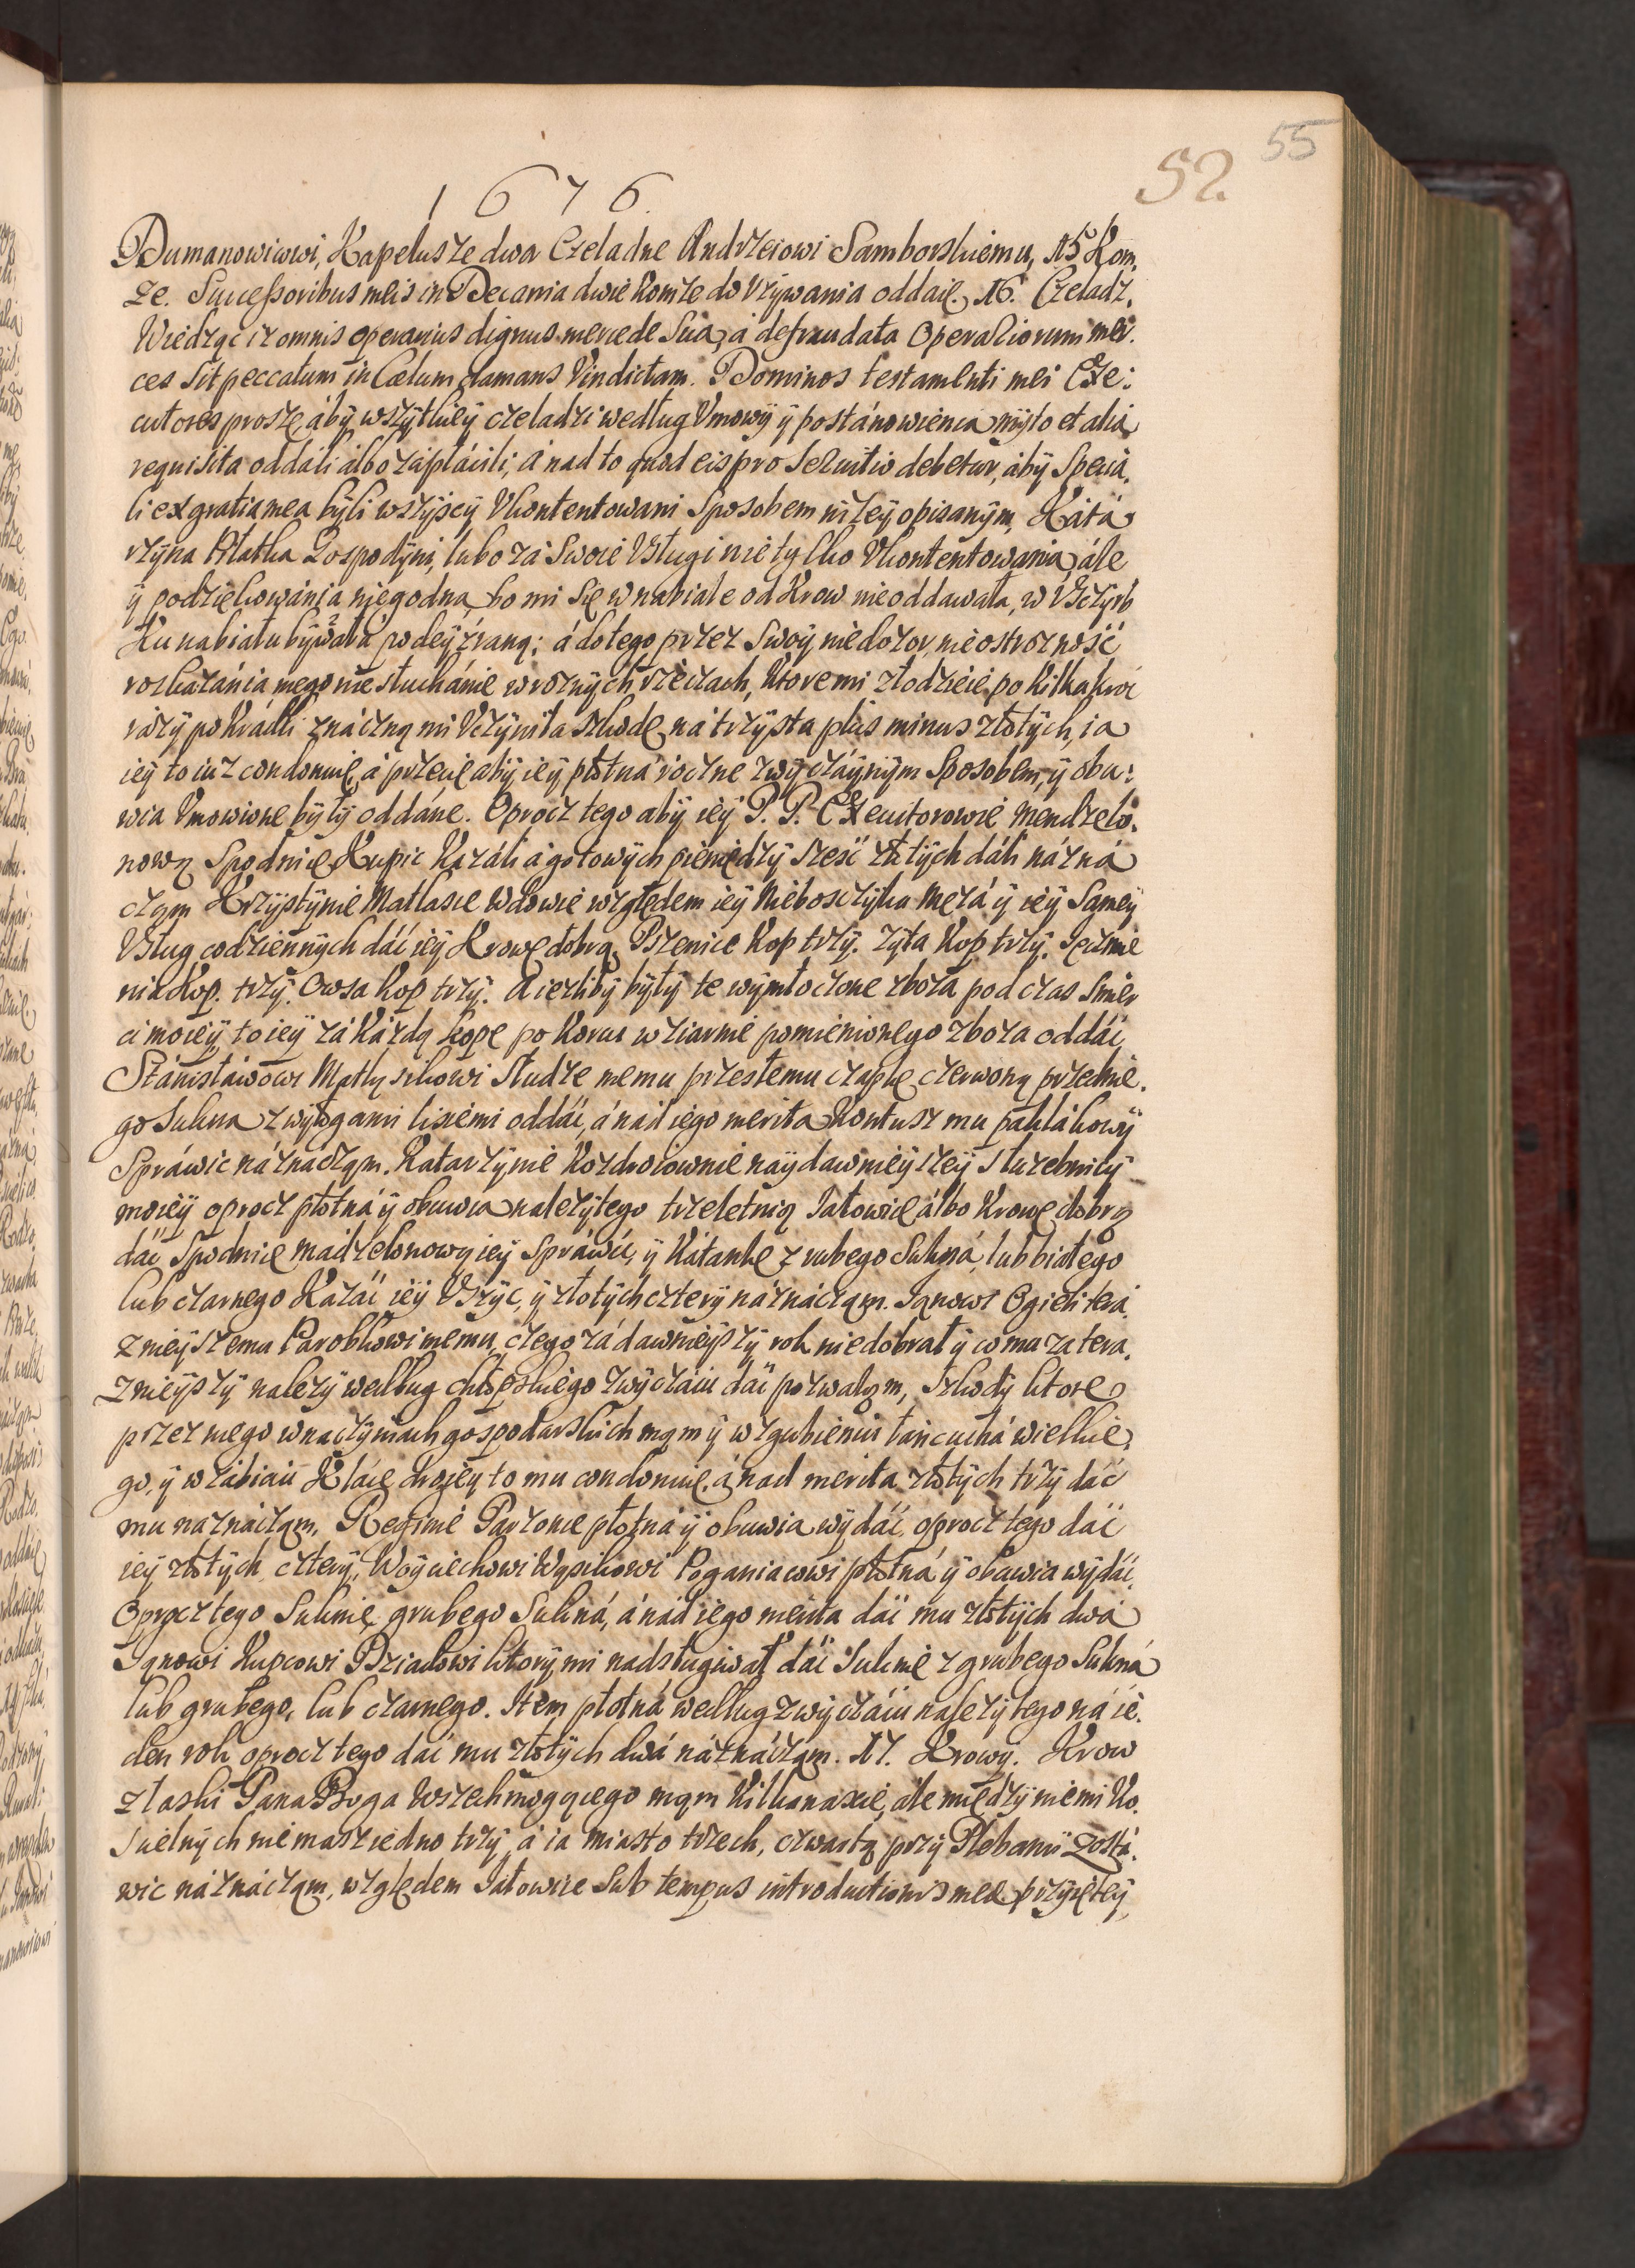 55
52
1676.
Dumanowiowi, Kapelusze dwa Czeladne Andrzeiowi Samborskiemu, 15 Kom,
ze. Successoribus meis in Decania dwie komże do vżywania oddaię. 16. Czeladz.
Wiedząc iż omnis operarius dignus mercede sua, á defraudata Operariorum mer.
ces sit peccatum in Cælum clamans Vindictam. Dominos testamenti mei Exe:
cutores proszę áby wszytkiey czeladzi według Vmowÿ ÿ postánowienia mÿto et alia
requisita oddáli álbo zápłáćili, á nad to quod eis pro seruitio debetur, áby speciá.
li ex gratia mea bÿli wszÿscÿ Vkontentowani sposobem niżeÿ opisanÿm, Kátá
rzÿna Płatka Gospodÿni, lubo zá swoie Vsługi nie tylko Vkontentowania, ále
ÿ podziękowánia niegodna, bo mi się w nabiale od Krow nie oddawała, w Vczÿnk
Ku nabiału bÿwała podeÿźraną; á do tego przez swoÿ niedozor, nieostrożność
roskazánia mego nie słuchánie w roznÿch rzeczach, ktoremi złodzieie po kilka kroć
rázÿ pokrádli znáczną mi Vczÿniła szkodę ná trzÿsta plus minus złotÿch, ia
ieÿ to iuż condonuię, á przecię abÿ ieÿ płotná roczne zwÿczáÿnÿm sposobem, ÿ obu:
wia Vmowione bÿłÿ oddáne. Oprocz tego abÿ ieÿ P. P. Exekutorowie mendzelo.
nową spodnicę Kupić kazáli á gotowÿch pieniędzÿ sześć złtÿch dáli názná
czam Krzÿstÿnie Matłasce wdowie względem ieÿ Nieboszczÿka Mężá ÿ ieÿ sameÿ
Vsług codziennÿch dáć ieÿ Krowę dobrą, Pszenice kop trzÿ. Zÿta kop trzÿ. Jęczmie
nia kop. trzÿ. Owsa kop trzÿ. A ieżlibÿ bÿłÿ te wÿmłocone zboża pod czas smier
ci moieÿ to ieÿ zá każdą kopę po korcu w ziarnie pomienionego zboża oddáć,
Stánisławowi Matysikowi Słudze memu przeszłemu czapkę czerwoną przednie.
go sukna z wÿłogami lisiemi oddáć, á nád iego merita kontusz mu paklákowÿ
spráwić náznáczam. Katarzÿnie Kozdroiownie naÿdawnieÿszeÿ służebnicÿ
moieÿ oprocz płotná ÿ obuwia należÿtego trzeletnią Jałowicę álbo Krowę dobrą
dáć, Spodnicę mádzelonową ieÿ spráwić, ÿ Kátankę z rubego sukná, lub białego
lub czarnego Kázáć ieÿ Vszÿć, ÿ złotÿch czterÿ náznáczam. Janowi Ogieli terá.
znieÿszemu Parobkowi memu, czego zá dawnieÿszÿ rok nie dobrał ÿ co mu za tera.
znieÿszÿ należÿ według chłopskiego zwÿczáiu dáć pozwalam, szkodÿ ktore
przez niego w naczÿniach gospodarskich mam ÿ w zgubieniu łańcuchá wielkie.
go, ÿ w zábiciu Kláce drogieÿ to mu condonuię, á nad merita złotÿch trzÿ dáć
mu naznáczam. Reginie Parzonce płotná ÿ obuwia wÿdáć, oprocz tego dáć
ieÿ złotÿch czterÿ, Woÿciechowi Wąsikowi Poganiacowi płotná ÿ obuwia wÿdáć.
Oprocz tego Suknię grubego Sukná, á nád iego merita dáć mu złotÿch dwá
Janowi Kupcowi Dziadowi ktorÿ mi nadsługiwał dáć Suknię z grubego Sukná
lub grubego, lub czarnego. Item płotná według zwÿczáiu należÿtego ná ie.
den rok, oprocz tego dáć mu złotÿch dwá náznáczam. 17. Krowÿ. Krow
z łaski Pana Boga Wszechmogącego mam kilkanaście, ále międzÿ niemi Ko.
scielnÿch nie masz iedno trzÿ, á ia miasto trzech, czwartą przÿ Plebanii zostá.
wić náznáczam, względem Jałowice sub tempus introductionis meæ przÿiętÿ,